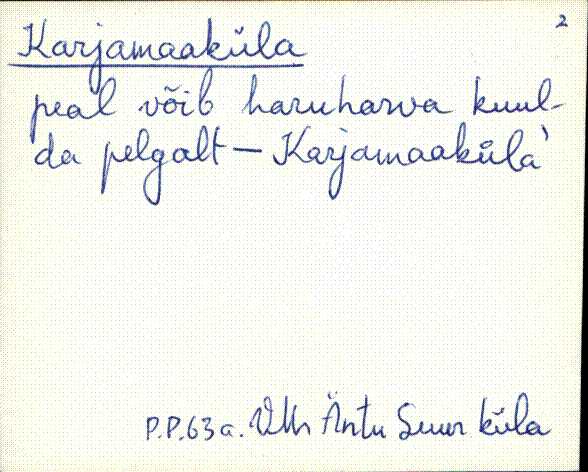 2
Karjamaaküla
peal võib haruharva kuul-
da pelgalt — Karjamaaküla
P.P. 63 a. Äntu Suur küla